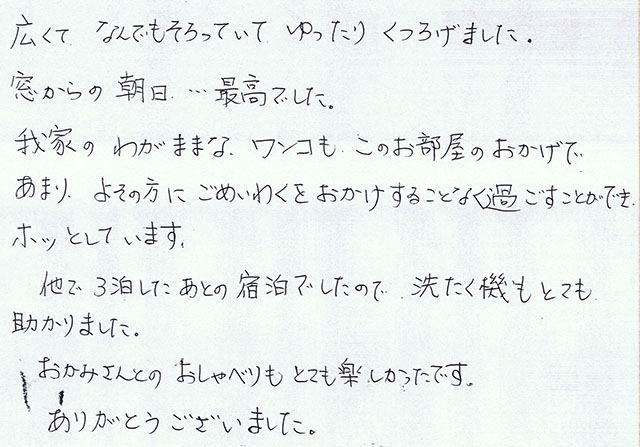 広くて なんでもそろっていて ゆったり くつろげました。
窓からの 朝日 … 最高でした。
我家の わがままな、ワンコも、このお部屋の おかげで
あまり、よその方に ごめいわくを おかけすることなく過ごすことができ、
ホッとしています。
他で 3泊した あとの 宿泊でしたので、洗たく機も とても
助かりました。
おかみさんとの おしゃべりも とても楽しかったです。
ありがとうございました。